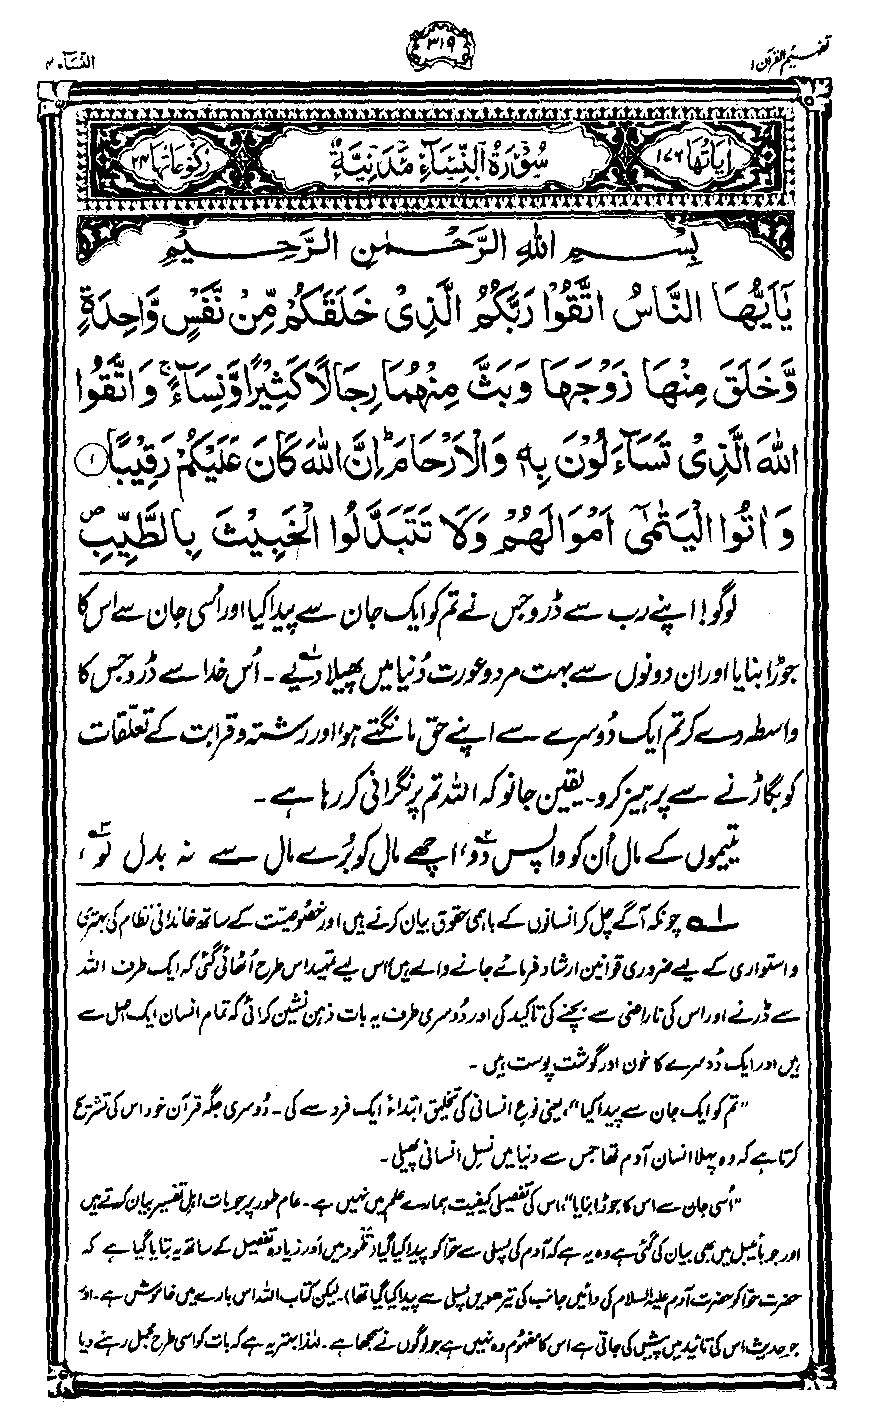 تفہیم القرآن ۱
۳۱۹
النسآء ۴
اٰیَاتُهَا ۱۷۶
سُوْرَةُ النِّسَآءِ مَدَنِیَّةٌ
رُکُوْعَاتُهَا ۲۴
بِسْمِ اللّٰهِ الرَّحْمٰنِ الرَّحِیْمِ
یٰۤاَیُّهَا النَّاسُ اتَّقُوْا رَبَّكُمُ الَّذِیْ خَلَقَكُمْ مِّنْ نَّفْسٍ وَّاحِدَةٍ
وَّخَلَقَ مِنْهَا زَوْجَهَا وَبَثَّ مِنْهُمَا رِجَالًا كَثِیْرًا وَّنِسَآءً ۚ وَاتَّقُوا
اللّٰهَ الَّذِیْ تَسَآءَلُوْنَ بِهٖ وَالْاَرْحَامَ ؕ اِنَّ اللّٰهَ كَانَ عَلَیْكُمْ رَقِیْبًا ۱
وَاٰتُوا الْیَتٰمٰۤی اَمْوَالَهُمْ وَلَا تَتَبَدَّلُوا الْخَبِیْثَ بِالطَّیِّبِ ۪
لوگو! اپنے رب سے ڈرو جس نے تم کو ایک جان سے پیدا کیا اور اُسی جان سے اس کا
جوڑا بنایا اور ان دونوں سے بہت مرد و عورت دُنیا میں پھیلا دیے۱۔ اُس خدا سے ڈرو جس کا
واسطہ دے کر تم ایک دُوسرے سے اپنے حق مانگتے ہو، اور رشتہ و قرابت کے تعلّقات
کو بگاڑنے سے پرہیز کرو۔ یقین جانو کہ اللہ تم پر نگرانی کر رہا ہے۔
یتیموں کے مال اُن کو واپس دو۲، اچھے مال کو بُرے مال سے نہ بدل لو۳،
۱؎ چونکہ آگے چل کر انسانوں کے باہمی حقوق بیان کرنے ہیں اور خصوصیّت کے ساتھ خاندانی نظام کی بہتری
و استواری کے لیے ضروری قوانین ارشاد فرمائے جانے والے ہیں، اس لیے تمہید اس طرح اُٹھائی گئی کہ ایک طرف اللہ
سے ڈرنے اور اس کی ناراضی سے بچنے کی تاکید کی اور دُوسری طرف یہ بات ذہن نشین کرائی کہ تمام انسان ایک اصل سے
ہیں اور ایک دُوسرے کا خون اور گوشت پوست ہیں۔
”تم کو ایک جان سے پیدا کیا“، یعنی نوعِ انسانی کی تخلیق ابتداءً ایک فرد سے کی۔ دُوسری جگہ قرآن خود اس کی تشریح
کرتا ہے کہ وہ پہلا انسان آدم تھا جس سے دنیا میں نسلِ انسانی پھیلی۔
”اُسی جان سے اس کا جوڑا بنایا“، اس کی تفصیلی کیفیت ہمارے علم میں نہیں ہے۔ عام طور پر جو بات اہلِ تفسیر بیان کرتے ہیں
اور جو بائیبل میں بھی بیان کی گئی ہے وہ یہ ہے کہ آدم کی پسلی سے حوّا کو پیدا کیا گیا (تلمود میں اَور زیادہ تفصیل کے ساتھ یہ بتایا گیا ہے کہ
حضرت حوّا کو حضرت آدم علیہ السلام کی دائیں جانب کی تیرھویں پسلی سے پیدا کیا گیا تھا)۔ لیکن کتاب اللہ اس بارے میں خاموش ہے۔ اور
جو حدیث اس کی تائید میں پیش کی جاتی ہے اس کا مفہُوم وہ نہیں ہے جو لوگوں نے سمجھا ہے۔ لہٰذا بہتر یہ ہے کہ بات کو اسی طرح مجمل رہنے دیا